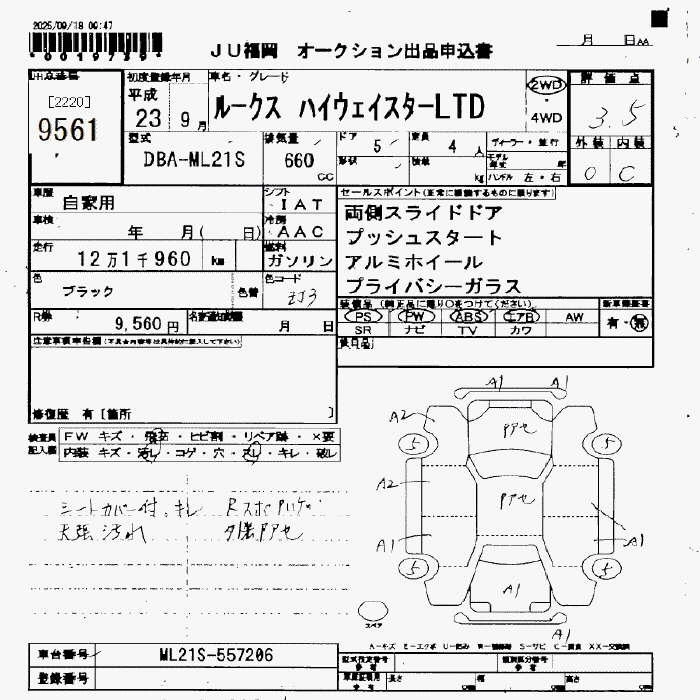 2025/09/18 09:47
*0019739*
JU福岡 オークション出品申込書
月 日
[2220]
9561
初度登録年月
平成
23 9月
車名・グレード
ルークス ハイウェイスターLTD
2WD
・
4WD
評価点
3.5
型式
DBA-ML21S
排気量
660
CC
ドア
5
形状
定員
4人
積載
kg
ディーラー・並行
モデル年式 年
ハンドル 左・右
外装 内装
O C
車歴
自家用
シフト
IAT
車検
年 月( 日)
冷房
AAC
走行
12万1千960 km
燃料
ガソリン
色
ブラック
色替
色コード
ZJ3
R券
9,560円
月 日
セールスポイント
両側スライドドア
プッシュスタート
アルミホイール
プライバシーガラス
装備品(純正品に限り○をつけてください)
PS PW ABS エアB AW
SR ナビ TV カワ
有・無
後日品
修復歴 有[箇所 ]
検査員
記入欄
FW キズ・飛石・ヒビ割・リペア跡・×要
内装 キズ・汚レ・コゲ・穴・スレ・キレ・破レ
シートカバー付、キレ
天張汚れ
外装アセ
A1 A1
A2
アアセ
5 5
A2
アアセ
A1 A1
5 5
A1
スペア
A1
A-キズ E-エクボ U-凹ミ S-サビ
車台番号
ML21S-557206
登録番号
型式指定番号
類別区分番号
長さ 幅 高さ